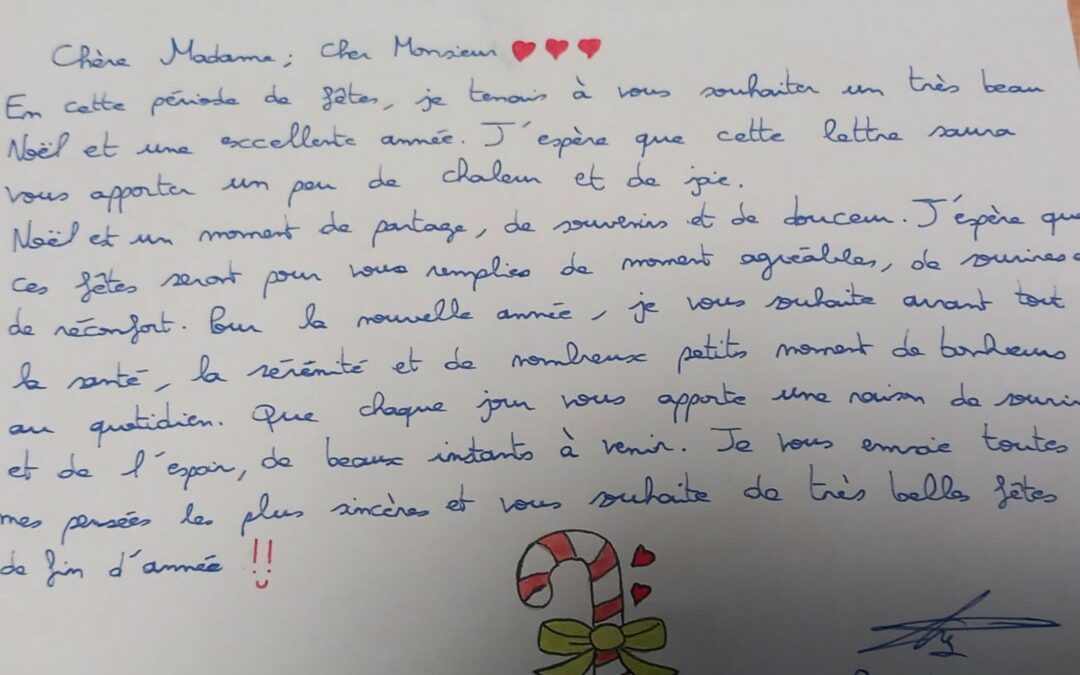 Chère Madame ; Cher Monsieur
En cette période de fêtes, je tenais à vous souhaiter un très beau
Noël et une excellente année. J'espère que cette lettre saura
vous apporter un peu de chaleur et de joie.
Noël et un moment de partage, de souvenirs et de douceur. J'éspère que
ces fêtes seront pour vous remplies de moment agréables, de sourires
de réconfort. Pour la nouvelle année, je vous souhaite avant tout
la santé, la sérénité et de nombreux petits moment de bonheurs
au quotidien. Que chaque jour vous apporte une raison de sourir
et de l'espoir, de beaux instants à venir. Je vous envoie toutes
mes pensées les plus sincères et vous souhaite de très belles fêtes
de fin d'année !!